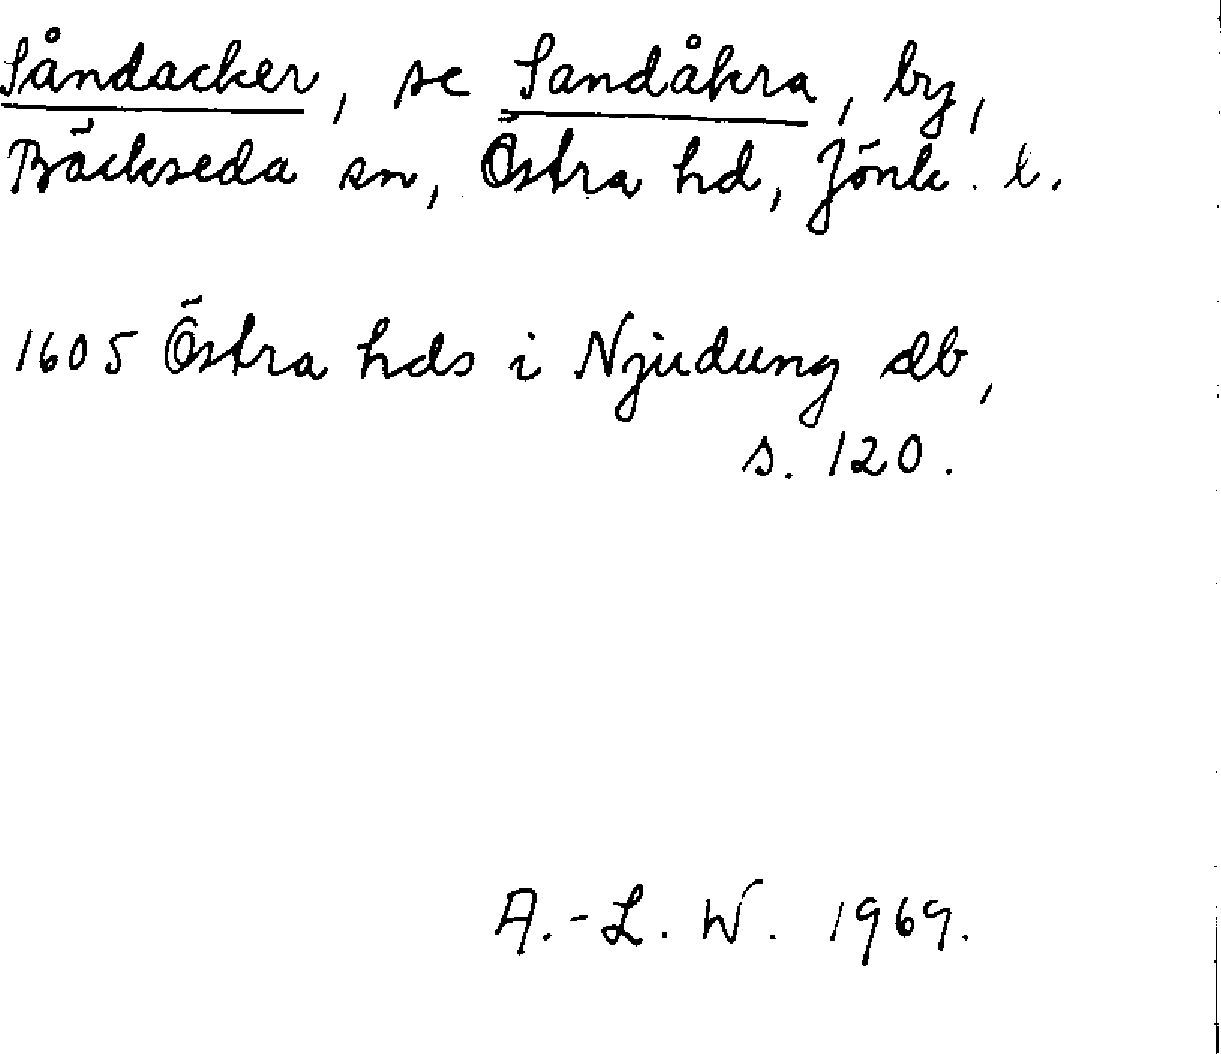 Såndacker, se Sandåkra, by,
Bäckseda sn, Östra hd, Jönk. l.
1605 Östra hds i Njudung db,
s. 120.
A.-L. W. 1969.